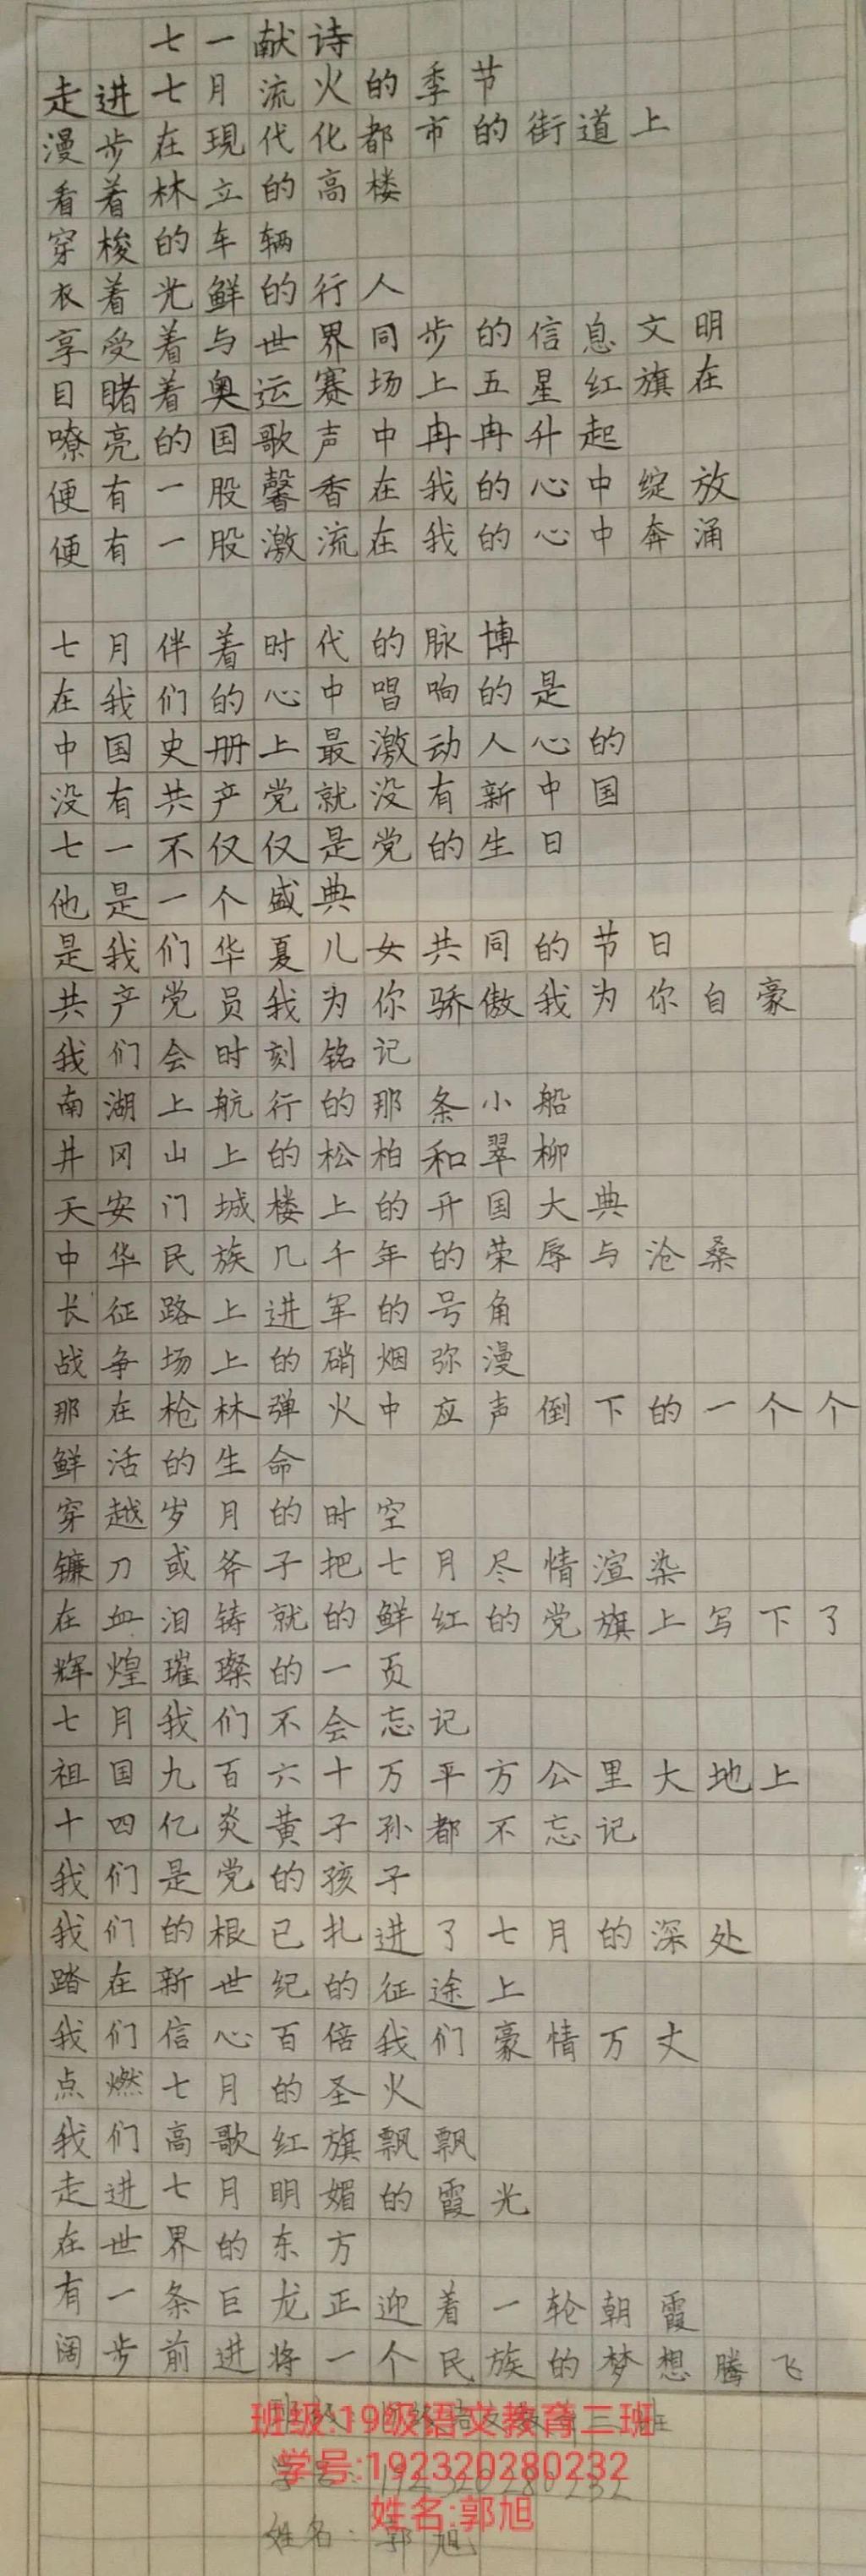 七一献诗
走进七月流火的季节
漫步在现代化都市的街道上
看着林立的高楼
穿梭的车辆
衣着光鲜的行人
享受着与世界同步的信息文明
目睹着奥运赛场上五星红旗在
嘹亮的国歌声中冉冉升起
便有一股馨香在我的心中绽放
便有一股激流在我的心中奔涌
七月伴着时代的脉博
在我们的心中唱响的是
中国史册上最激动人心的
没有共产党就没有新中国
七一不仅仅是党的生日
他是一个盛典
是我们华夏儿女共同的节日
共产党员我为你骄傲我为你自豪
我们会时刻铭记
南湖上航行的那条小船
井冈山上的松柏和翠柳
天安门城楼上的开国大典
中华民族几千年的荣辱与沧桑
长征路上进军的号角
战争场上的硝烟弥漫
那在枪林弹火中应声倒下的一个个
鲜活的生命
穿越岁月的时空
镰刀或斧子把七月尽情渲染
在血泪铸就的鲜红的党旗上写下了
辉煌璀璨的一页
七月我们不会忘记
祖国九百六十万平方公里大地上
十四亿炎黄子孙都不忘记
我们是党的孩子
我们的根已扎进了七月的深处
踏在新世纪的征途上
我们信心百倍我们豪情万丈
点燃七月的圣火
我们高歌红旗飘飘
走进七月明媚的霞光
在世界的东方
有一条巨龙正迎着一轮朝霞
阔步前进将一个民族的梦想腾飞
班级:19级语文教育二班
学号:192320280232
姓名:郭旭
姓名:郭旭